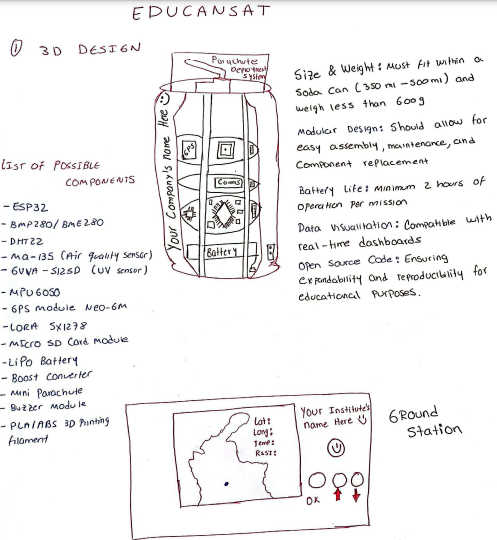 EDUCANSAT
① 3D DESIGN
Parachute
Deployment
System
Your Company's name Here
GPS
Comms
Battery
Size & Weight: Must fit within a
Soda Can (350 ml - 500ml) and
weigh less than 600g
Modular Design: Should allow for
easy assembly, maintenance, and
Component replacement
Battery Life: Minimum 2 hours of
operation per mission
Data Visualization: Compatible with
real-time dashboards
Open Source Code: Ensuring
expandability and reproducibility for
educational purposes.
LIST OF POSSIBLE
COMPONENTS
- ESP32
- BMP280/BME280
- DHT22
- MQ-135 (Air quality sensor)
- GUVA-S12SD (UV sensor)
- MPU6050
- GPS module Neo-6M
- LORA SX1278
- Micro SD Card module
- LiPo Battery
- Boost Converter
- Mini Parachute
- Buzzer Module
- PLA/ABS 3D Printing
filament
Lat:
Long:
Temp:
RSSI:
Your Institute's
name Here
OK
Ground
Station